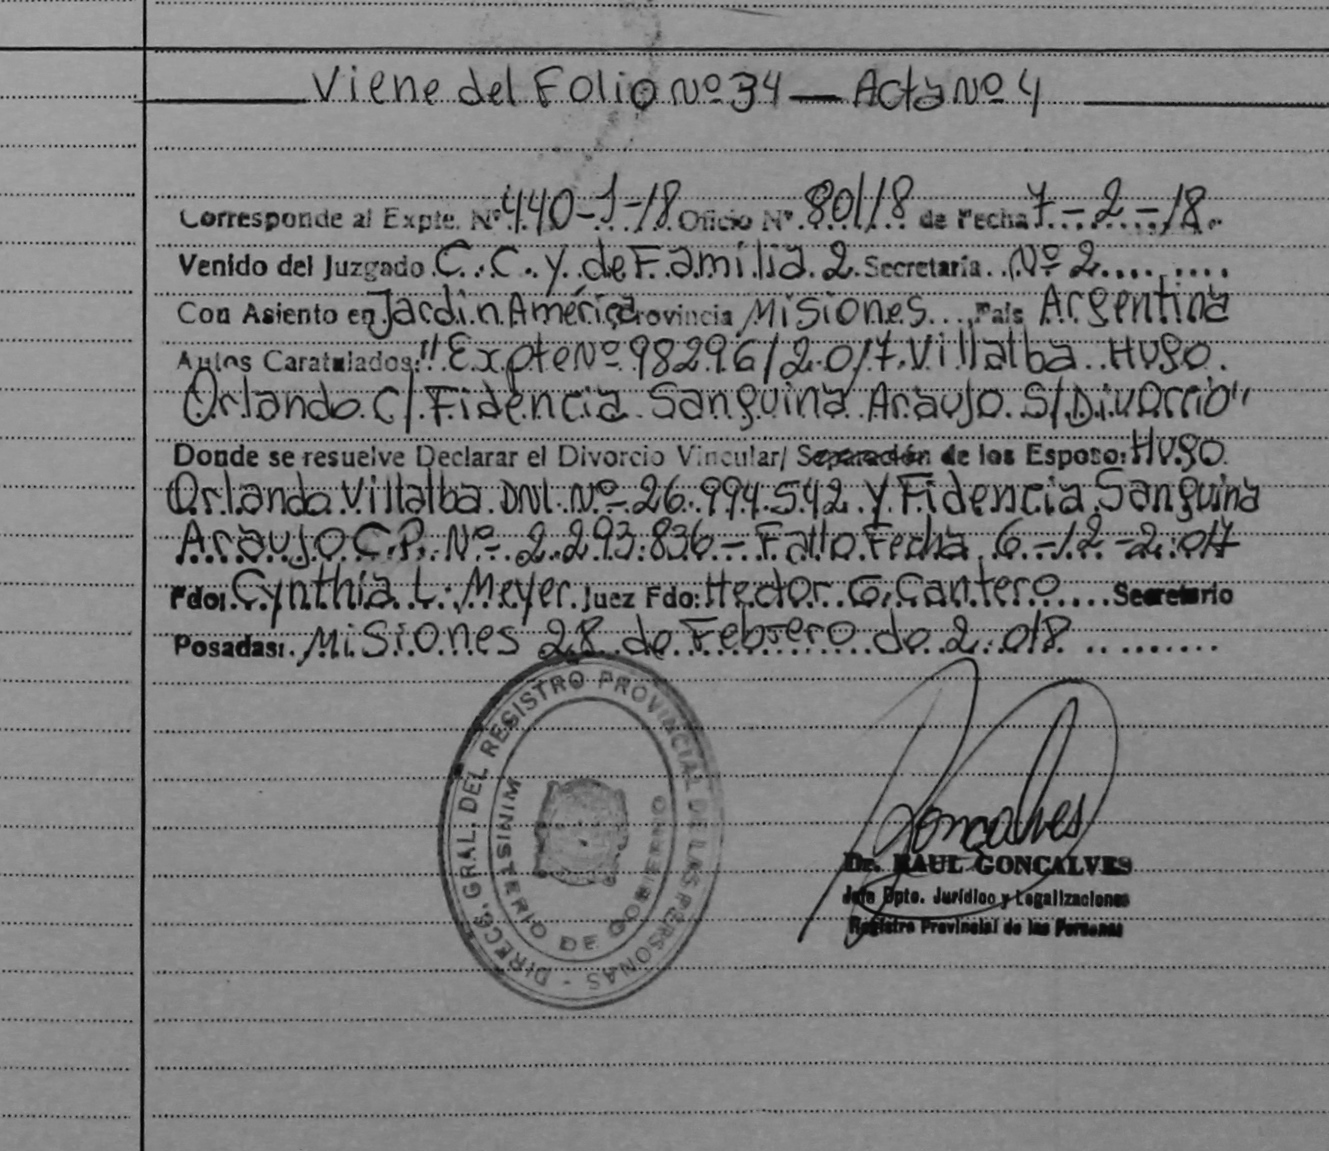 Viene del Folio Nº 34 — Acta Nº 4
Corresponde al Expte. Nº 440-J-18 Oficio Nº 80/18 de Fecha 7-2-18.
Venido del Juzgado C.C. y de Familia 2 Secretaría Nº 2
Con Asiento en Jardín América Provincia Misiones País Argentina
Autos Caratulados: "Expte Nº 98296/2017 Villalba Hugo
Orlando C/ Fidencia Sanguina Araujo S/Divorcio"
Donde se resuelve Declarar el Divorcio Vincular/ Separación de los Esposo: Hugo
Orlando Villalba DNI. Nº 26.994.542 y Fidencia Sanguina
Araujo C.P. Nº 2.293.836 - Fallo Fecha 6-12-2017
Fdo: Cynthia L. Meyer Juez Fdo: Hector G. Cantero Secretario
Posadas: Misiones 28 de Febrero de 2018
DIRECC. GRAL. DEL REGISTRO PROVINCIAL DE LAS PERSONAS -
MINISTERIO DE GOBIERNO
Goncalves
Dr. RAUL GONCALVES
Jefe Dpto. Jurídico y Legalizaciones
Registro Provincial de las Personas